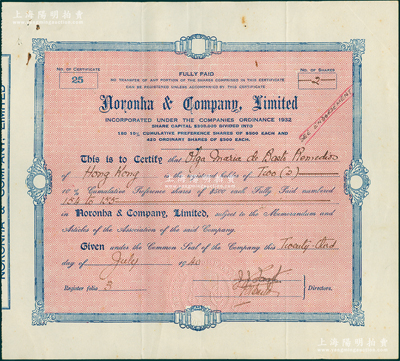 上海阳明拍卖
NORONHA & COMPANY, LIMITED
NO. OF CERTIFICATE
25
NO. OF SHARES
2
FULLY PAID
NO TRANSFER OF ANY PORTION OF THE SHARES COMPRISED IN THIS CERTIFICATE
CAN BE REGISTERED UNLESS ACCOMPANIED BY THIS CERTIFICATE
Noronha & Company, Limited
INCORPORATED UNDER THE COMPANIES ORDINANCE 1932
SHARE CAPITAL DIVIDED INTO
10% CUMULATIVE PREFERENCE SHARES OF $500 EACH AND
ORDINARY SHARES OF $500 EACH
This is to Certify that Olga Maria de Baeta Remedios
of Hong Kong of Two (2)
10% Cumulative Preference shares of $500 each Fully Paid numbered
154 to 155
in Noronha & Company, Limited, subject to the Memorandum and
Articles of the Association of the said Company.
Given under the Common Seal of the Company this Twenty third
day of July 1940
Register folio 3
Directors.